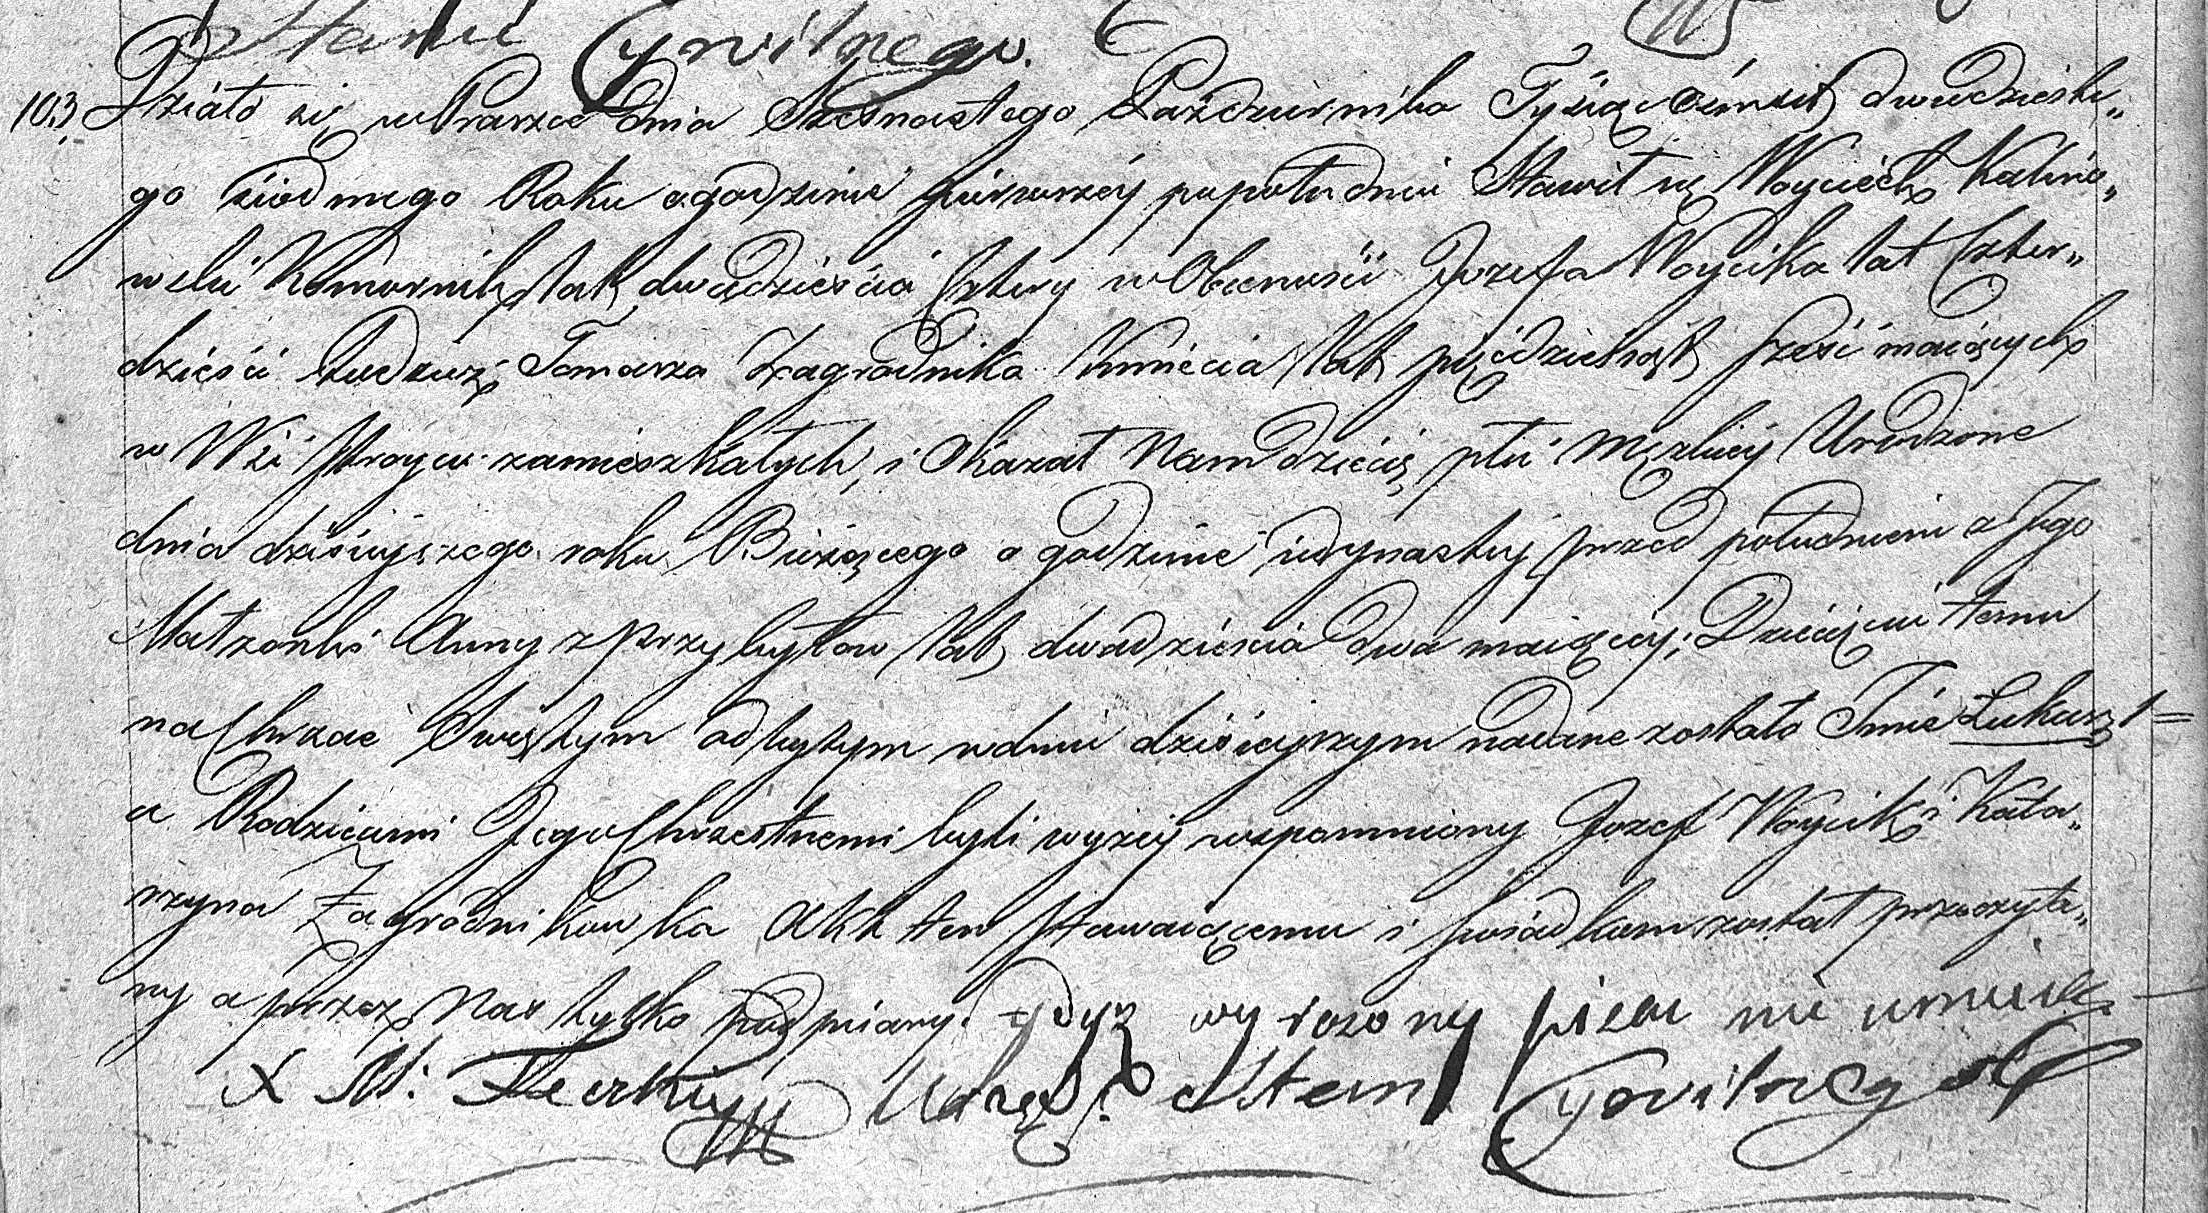 Stanu Cywilnego.
103. Działo się w Parzce dnia Szesnastego Października Tysiąc ośmset dwudzieste„
go siódmego Roku o godzinie pierwszéy popołudniu Stawił się Woyciech Kalino„
wski Komornik lat dwadzieścia Cztery w Obecności Jozefa Woycika lat Czter„
dzieści tudzież Tomasza Zagrodnika Kmiecia lat pięćdziesiąt sześć maiących
w Wsi zamieszkałych, i Okazał Nam dziecię płci Męzkiey Urodzone
dnia dzisieyszego roku Bieżącego o godzinie iedynastey przed południem z Jego
Małżonki Anny z Przybyłow lat dwadzieścia dwa maiącey; Dziecięciu temu
na Chrzcie Swiętym odbytym w dniu dzisieyszym nadane zostało Jmie Łukasz 1=
a Rodzicami Jego Chrzestnemi byli wyżéy wspomniony Jozef Woycik i Kata„
rzyna Zagrodnikowka Akt ten Stawaiącemu i świadkom został przeczyta„
ny a przez Nas tylko podpisany. gdyz wyrazony pisac nie umieią
X M. Urzęd: Stanu Cywilnego